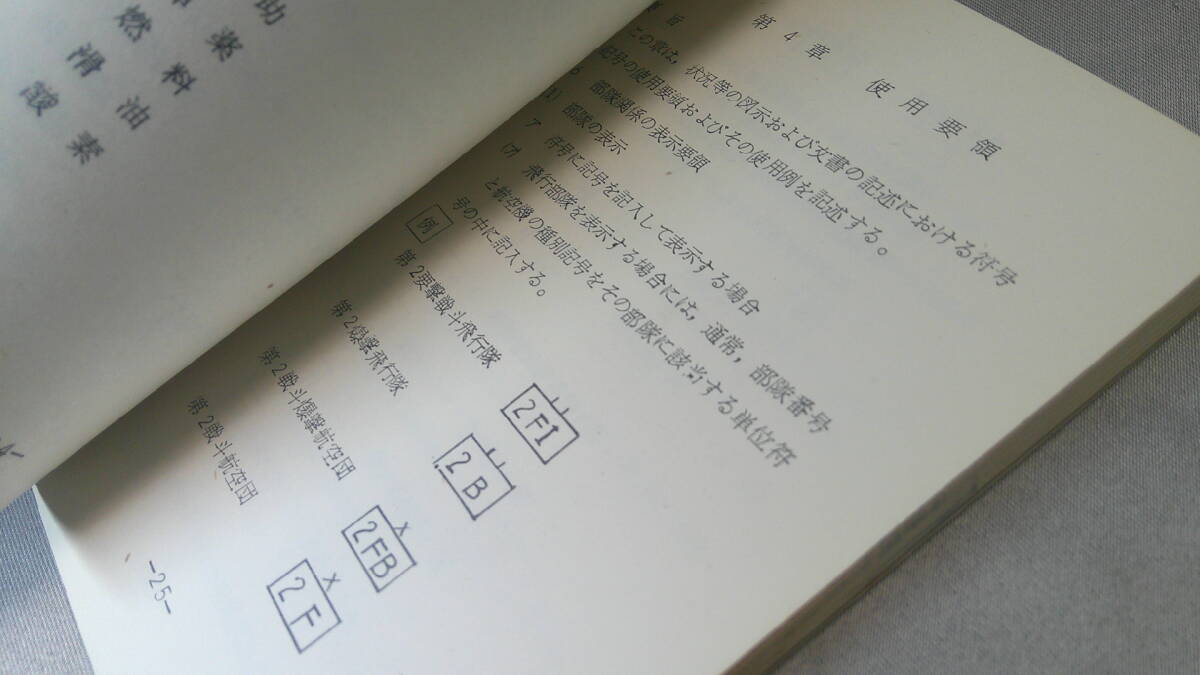 助
薬
燃料
滑油
酸素
第4章 使用要領
この章は,状況等の図示および文書の記述における符号
記号の使用要領およびその使用例を記述する。
部隊関係の表示要領
部隊の表示
ア 符号に記号を記入して表示する場合
(ｱ) 飛行部隊を表示する場合には,通常,部隊番号
と航空機の種別記号をその部隊に該当する単位符
号の中に記入する。
例
第2要撃戦斗飛行隊 2FI
第2爆撃飛行隊 2B
第2戦斗爆撃航空団 2FB
第2戦斗航空団 2F
-25-